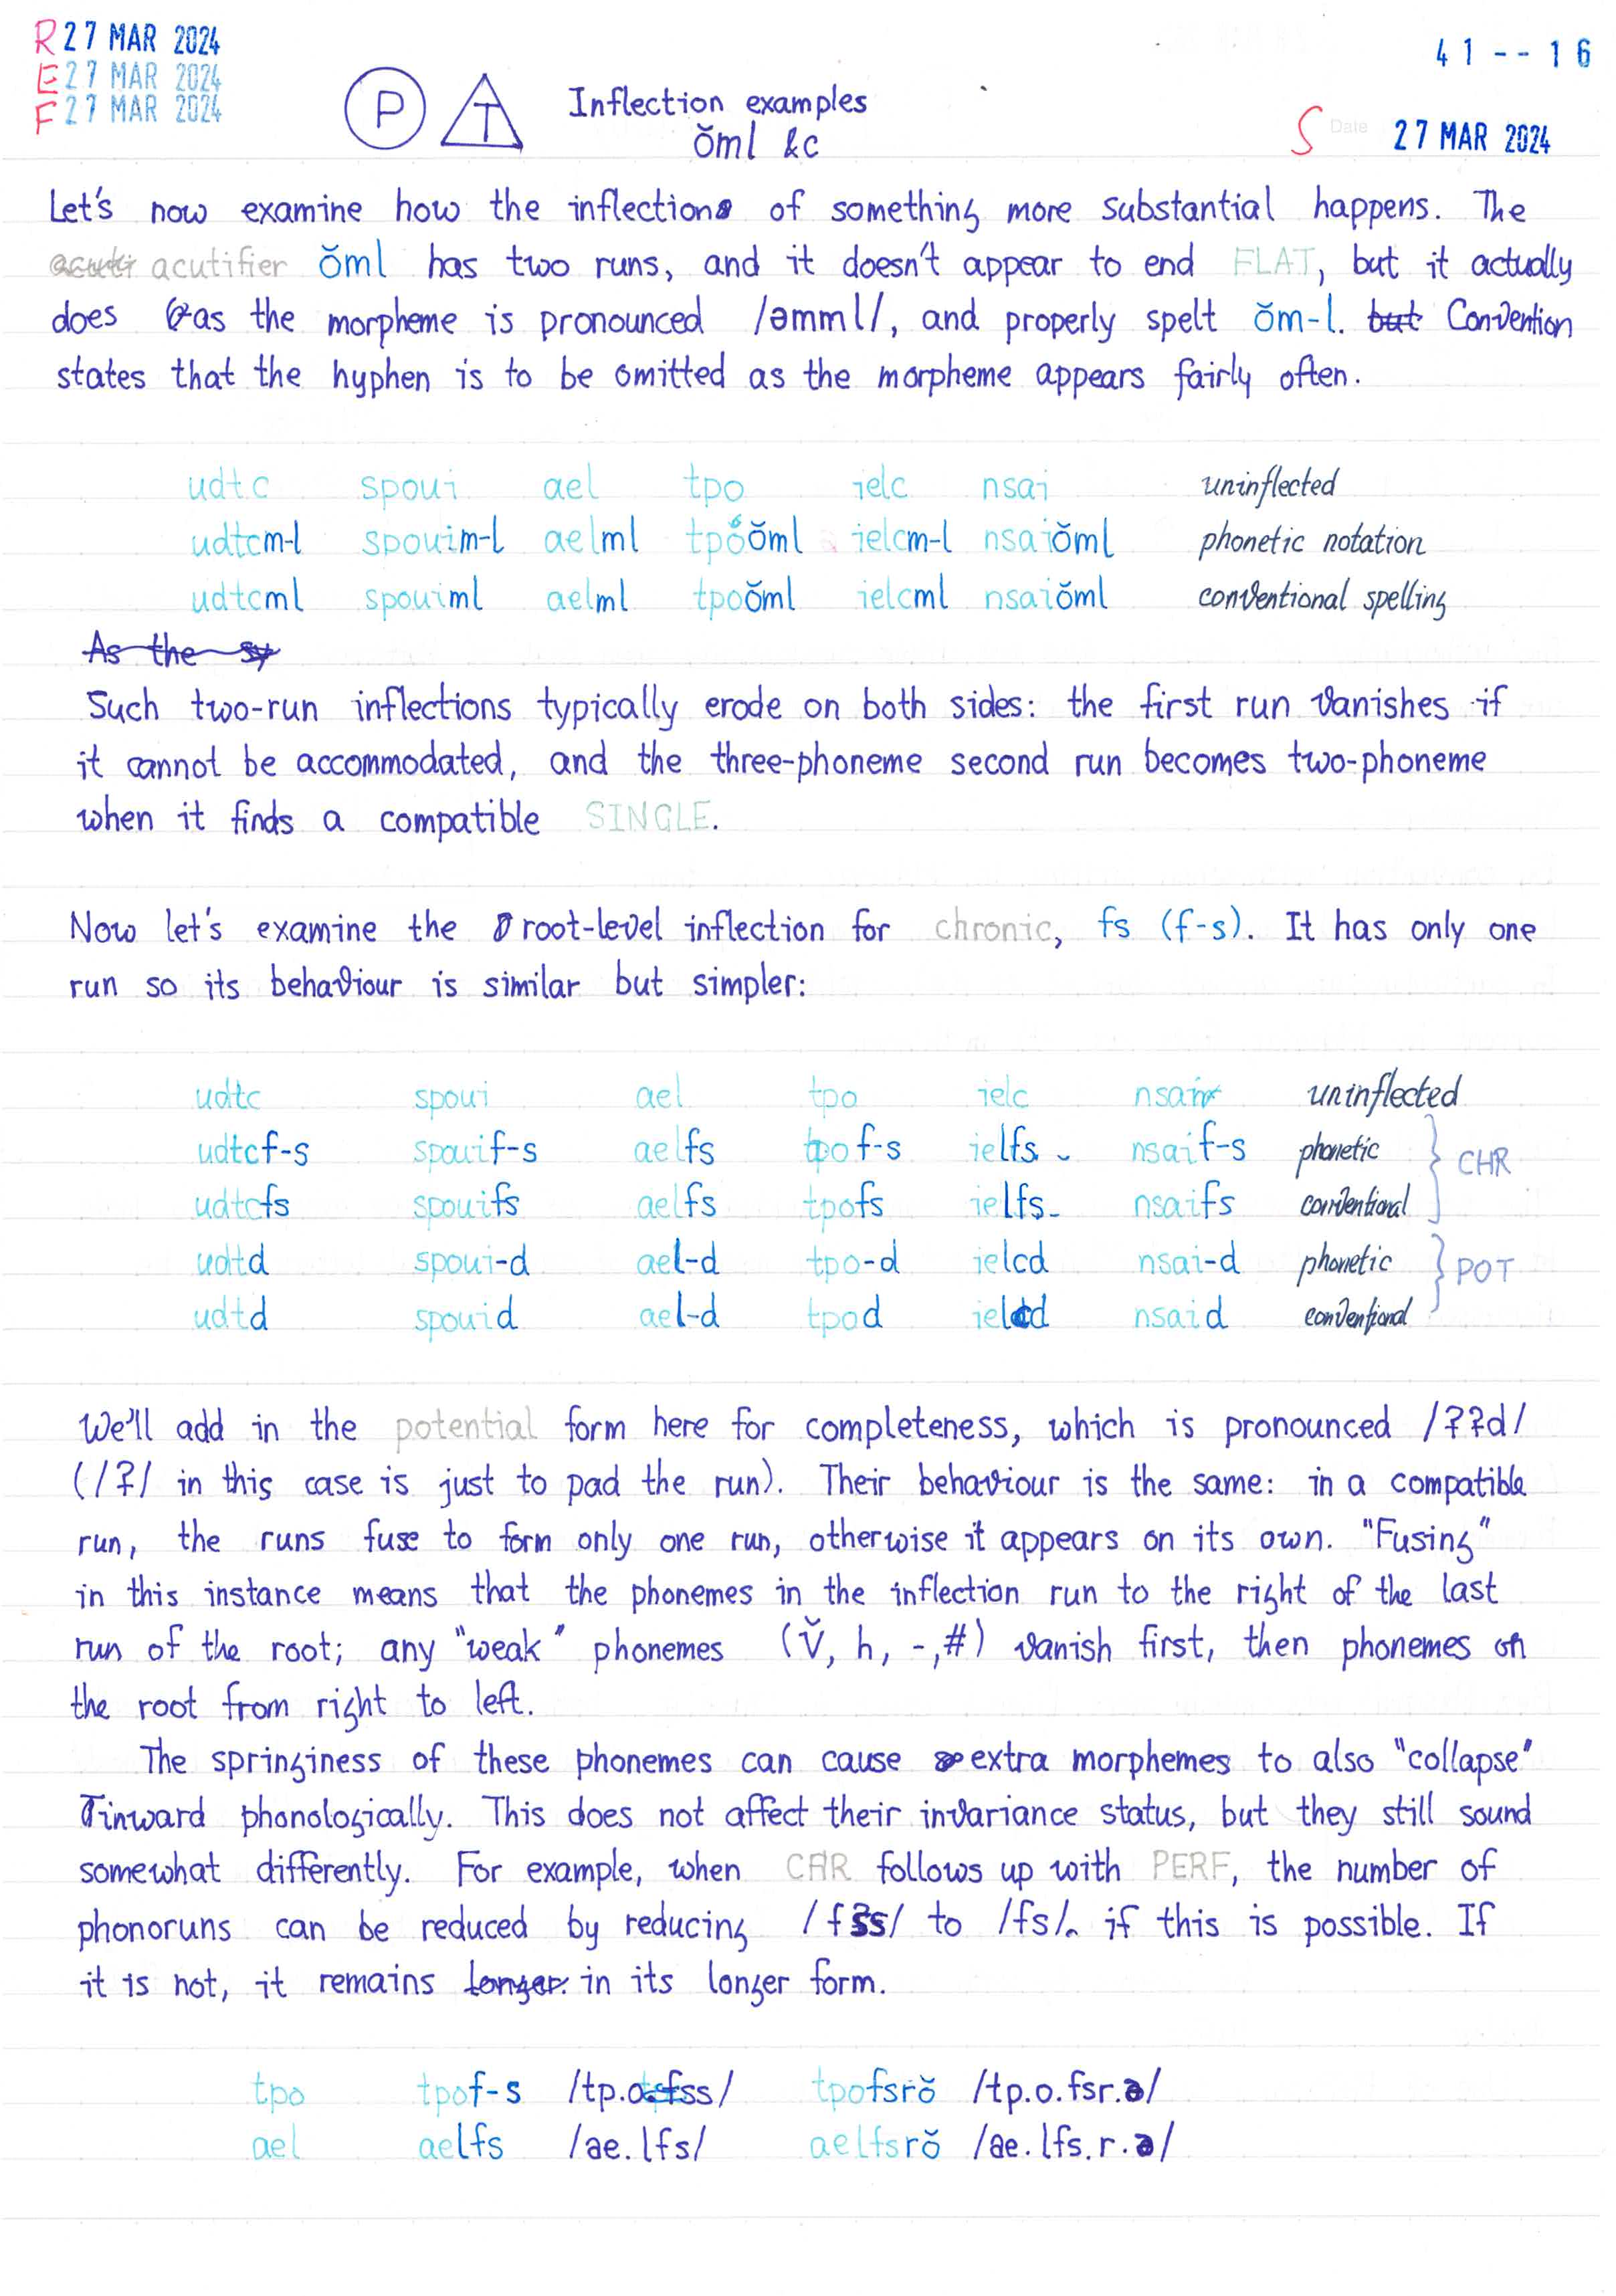 R 27 MAR 2024
E 27 MAR 2024
F 27 MAR 2024
41 -- 16
P T Inflection examples
ŏml &c
S Date 27 MAR 2024
Let's now examine how the inflections of something more substantial happens. The
acutifier ŏml has two runs, and it doesn't appear to end FLAT, but it actually
does as the morpheme is pronounced /əmml/, and properly spelt ŏm-l. but Convention
states that the hyphen is to be omitted as the morpheme appears fairly often.
udtc spoui ael tpo ielc nsai uninflected
udtcm-l spouim-l aelml tpoŏml ielcm-l nsaiŏml phonetic notation
udtcml spouiml aelml tpoŏml ielcml nsaiŏml conventional spelling
As the
Such two-run inflections typically erode on both sides: the first run vanishes if
it cannot be accommodated, and the three-phoneme second run becomes two-phoneme
when it finds a compatible SINGLE.
Now let's examine the root-level inflection for chronic, fs (f-s). It has only one
run so its behaviour is similar but simpler:
udtc spoui ael tpo ielc nsai uninflected
udtcf-s spouif-s aelfs tpof-s ielfs nsaif-s phonetic } CHR
udtcfs spouifs aelfs tpofs ielfs nsaifs conventional
udtd spoui-d ael-d tpo-d ielcd nsai-d phonetic } POT
udtd spouid ael-d tpod ielcd nsaid conventional
We'll add in the potential form here for completeness, which is pronounced /ʔʔd/
(/ʔ/ in this case is just to pad the run). Their behaviour is the same: in a compatible
run, the runs fuse to form only one run, otherwise it appears on its own. "Fusing"
in this instance means that the phonemes in the inflection run to the right of the last
run of the root; any "weak" phonemes (V̆, h, -, #) vanish first, then phonemes on
the root from right to left.
The springiness of these phonemes can cause extra morphemes to also "collapse"
inward phonologically. This does not affect their invariance status, but they still sound
somewhat differently. For example, when CHR follows up with PERF, the number of
phonoruns can be reduced by reducing /fss/ to /fs/ if this is possible. If
it is not, it remains longer. in its longer form.
tpo tpof-s /tp.o.fss/ tpofsrŏ /tp.o.fsr.ə/
ael aelfs /ae.lfs/ aelfsrŏ /ae.lfs.r.ə/